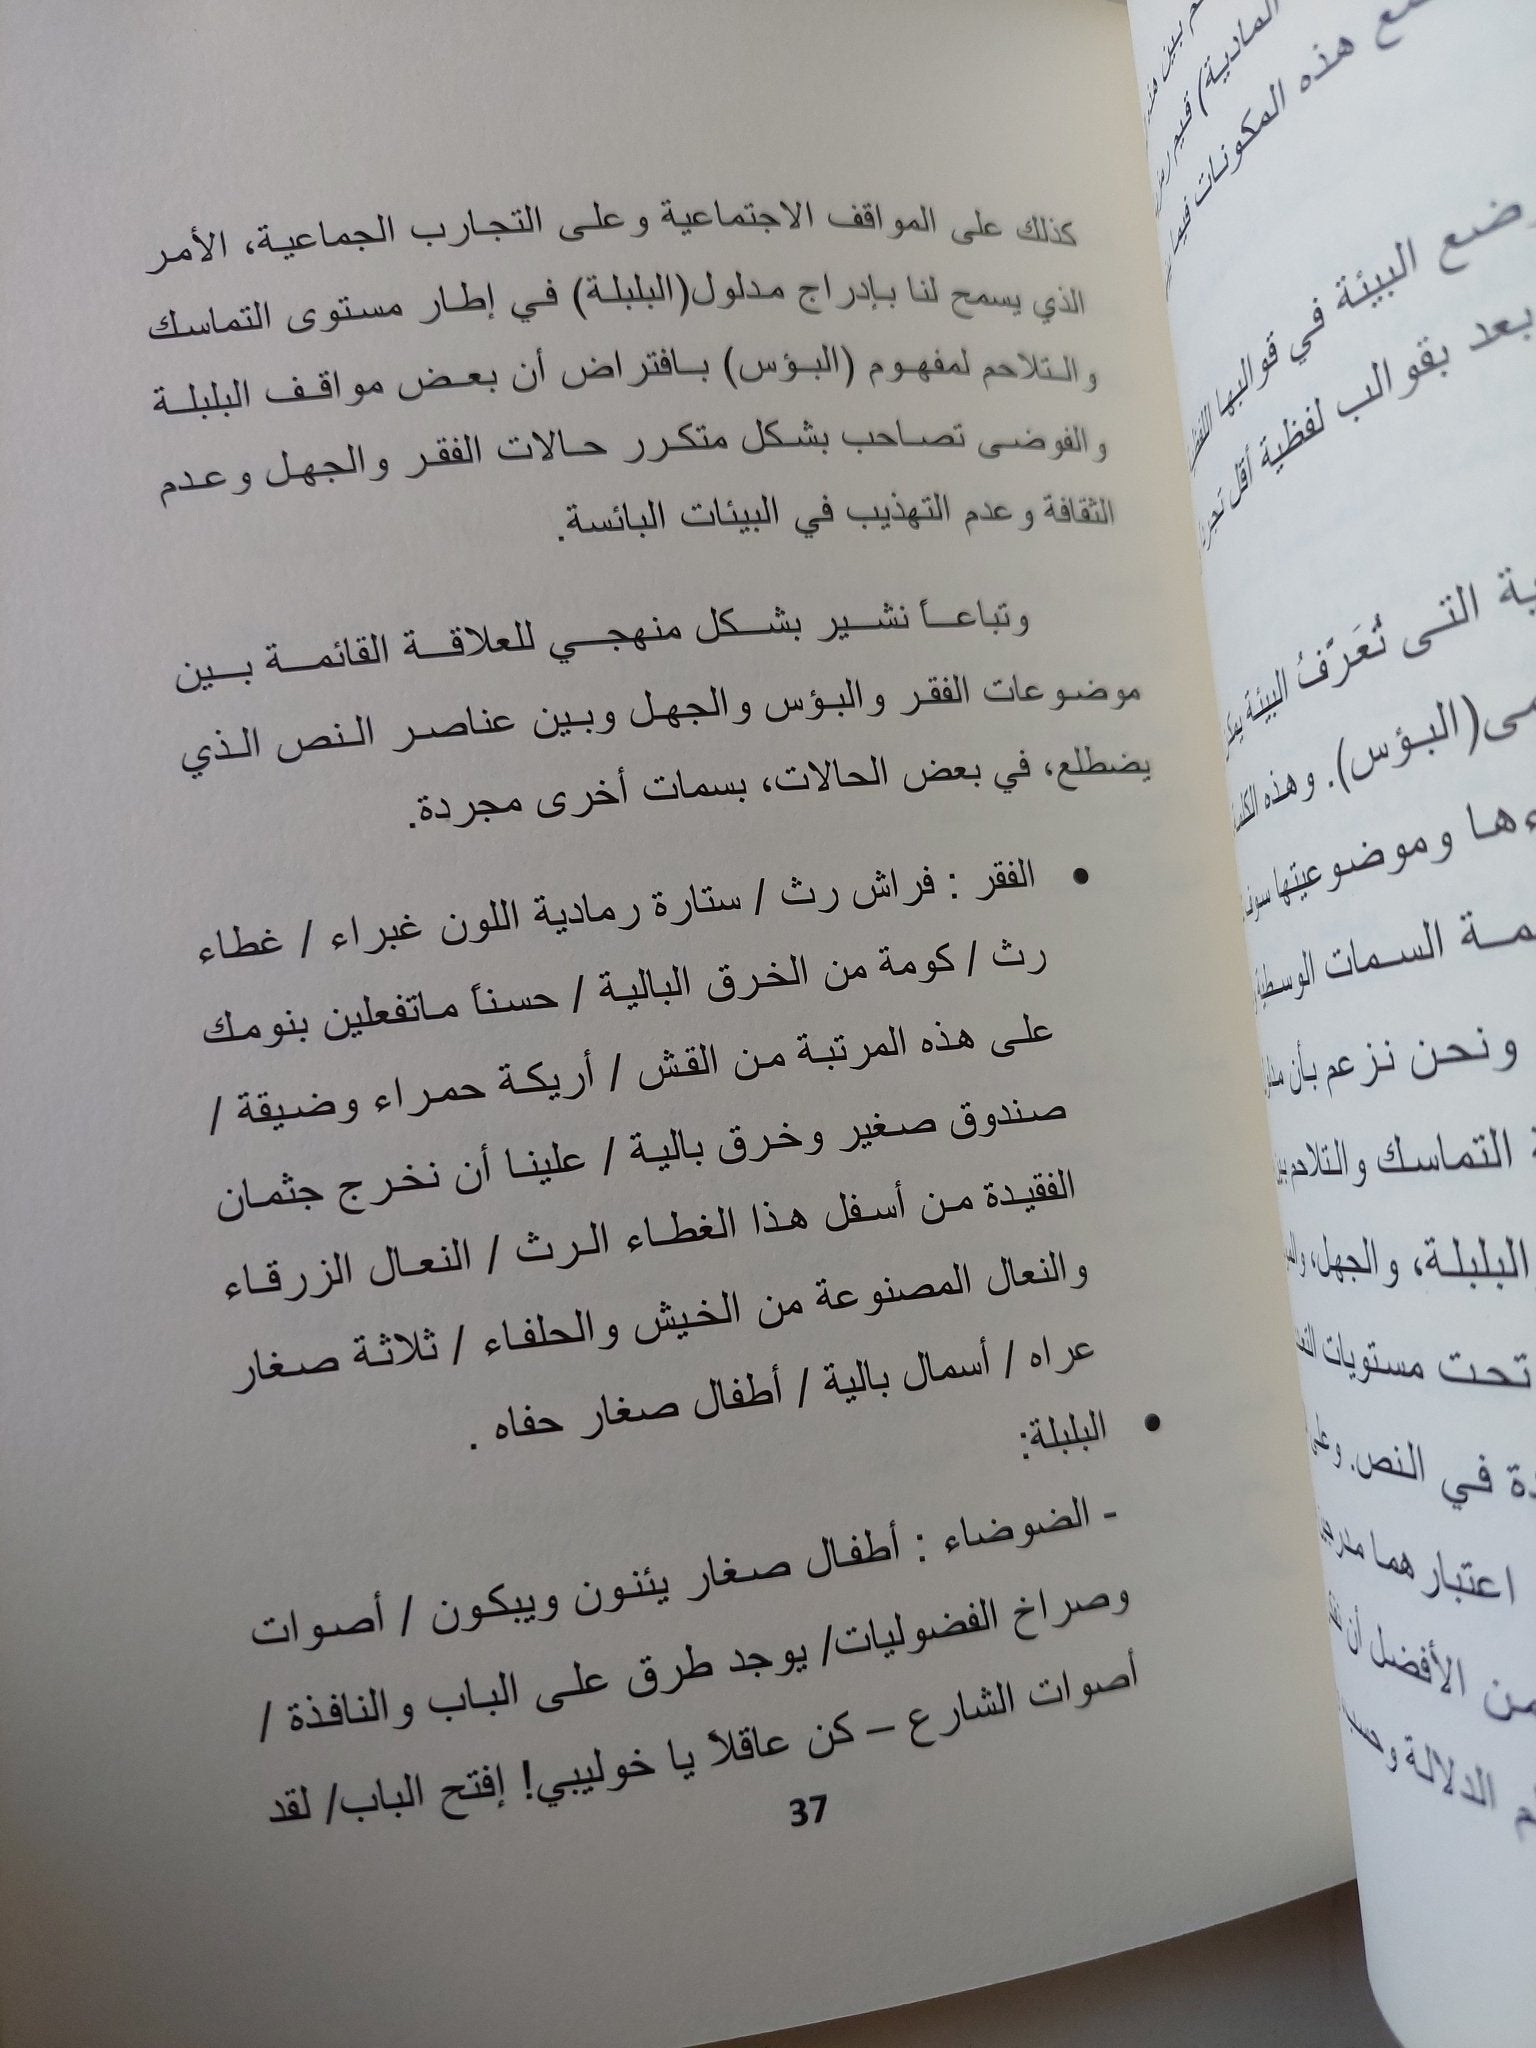 كذلك على المواقف الاجتماعية وعلى التجارب الجماعية، الأمر
الذي يسمح لنا بإدراج مدلول(البلبلة) في إطار مستوى التماسك
والتلاحم لمفهوم (البؤس) بافتراض أن بعض مواقف البلبلة
والفوضى تصاحب بشكل متكرر حالات الفقر والجهل وعدم
الثقافة وعدم التهذيب في البيئات البائسة.
وتباعاً نشير بشكل منهجي للعلاقة القائمة بين
موضوعات الفقر والبؤس والجهل وبين عناصر النص الذي
يضطلع، في بعض الحالات، بسمات أخرى مجردة.
• الفقر : فراش رث / ستارة رمادية اللون غبراء / غطاء
رث / كومة من الخرق البالية / حسناً ماتفعلين بنومك
على هذه المرتبة من القش / أريكة حمراء وضيقة /
صندوق صغير وخرق بالية / علينا أن نخرج جثمان
الفقيدة من أسفل هذا الغطاء الرث / النعال الزرقاء
والنعال المصنوعة من الخيش والحلفاء / ثلاثة صغار
عراه / أسمال بالية / أطفال صغار حفاه .
• البلبلة:
- الضوضاء : أطفال صغار يئنون ويبكون / أصوات
وصراخ الفضوليات/ يوجد طرق على الباب والنافذة /
أصوات الشارع – كن عاقلاً يا خوليبي! إفتح الباب/ لقد
37
المادية) قيم
ع هذه المكونات فيما
البيئة في قوالبها
بعد بقوالب لفظية أقل
التى تُعَرَّفُ البيئة
(البؤس). وهذه
وموضوعيتها
السمات الوسطية
ونحن نزعم بأن
التماسك والتلاحم
البلبلة، والجهل،
تحت مستويات
في النص.
اعتبار هما
من الأفضل أن
الدلالة